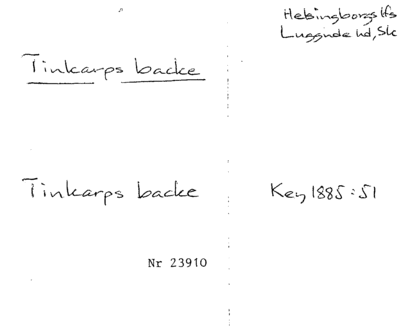 Helsingborgs lfs
Luggude hd, Sk
Tinkarps backe
Tinkarps backe
Key 1885:51
Nr 23910